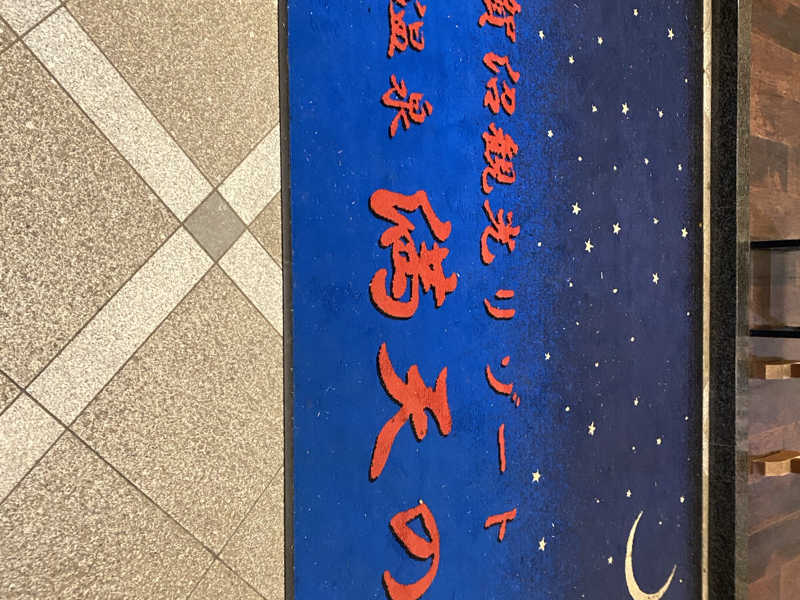 賀谷観光リゾート
温泉 満天の